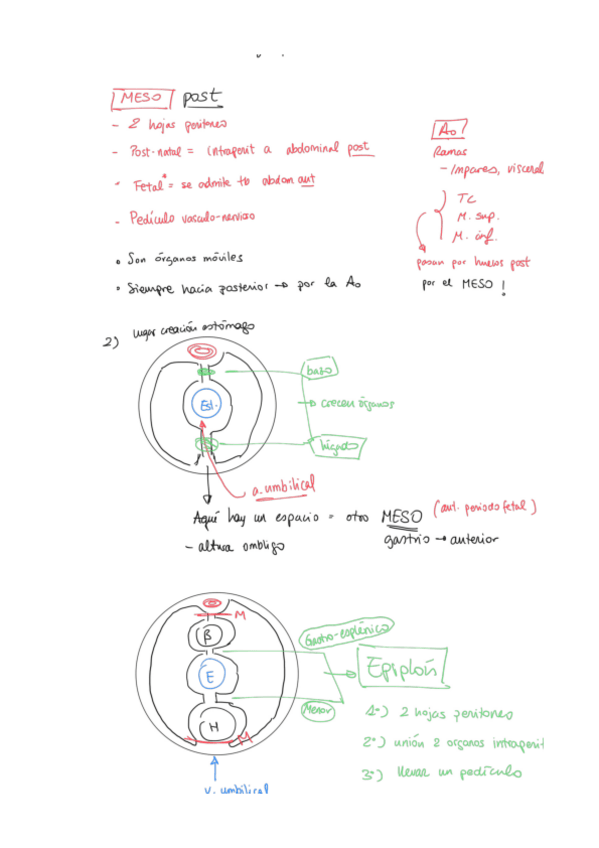 MESO post
- 2 hojas peritoneo
- Post-natal = intraperit a abdominal post
- Fetal* = se admite tb abdom ant
- Pedículo vasculo-nervioso
• Son órganos móviles
• Siempre hacia posterior → por la Ao
Ao
Ramas
- Impares, visceral
TC
M. sup.
M. inf.
pasan por huecos post
por el MESO !
2) lugar creación estómago
bazo
Est.
→ crecen órganos
hígado
a. umbilical
Aquí hay un espacio = otro MESO (ant. periodo fetal)
- altura ombligo
gastrio → anterior
M
B
Gastro-esplénico
E
Epiplón
Menor
H
M
1º) 2 hojas peritoneo
2º) unión 2 organos intraperit
3º) llevar un pedículo
v. umbilical